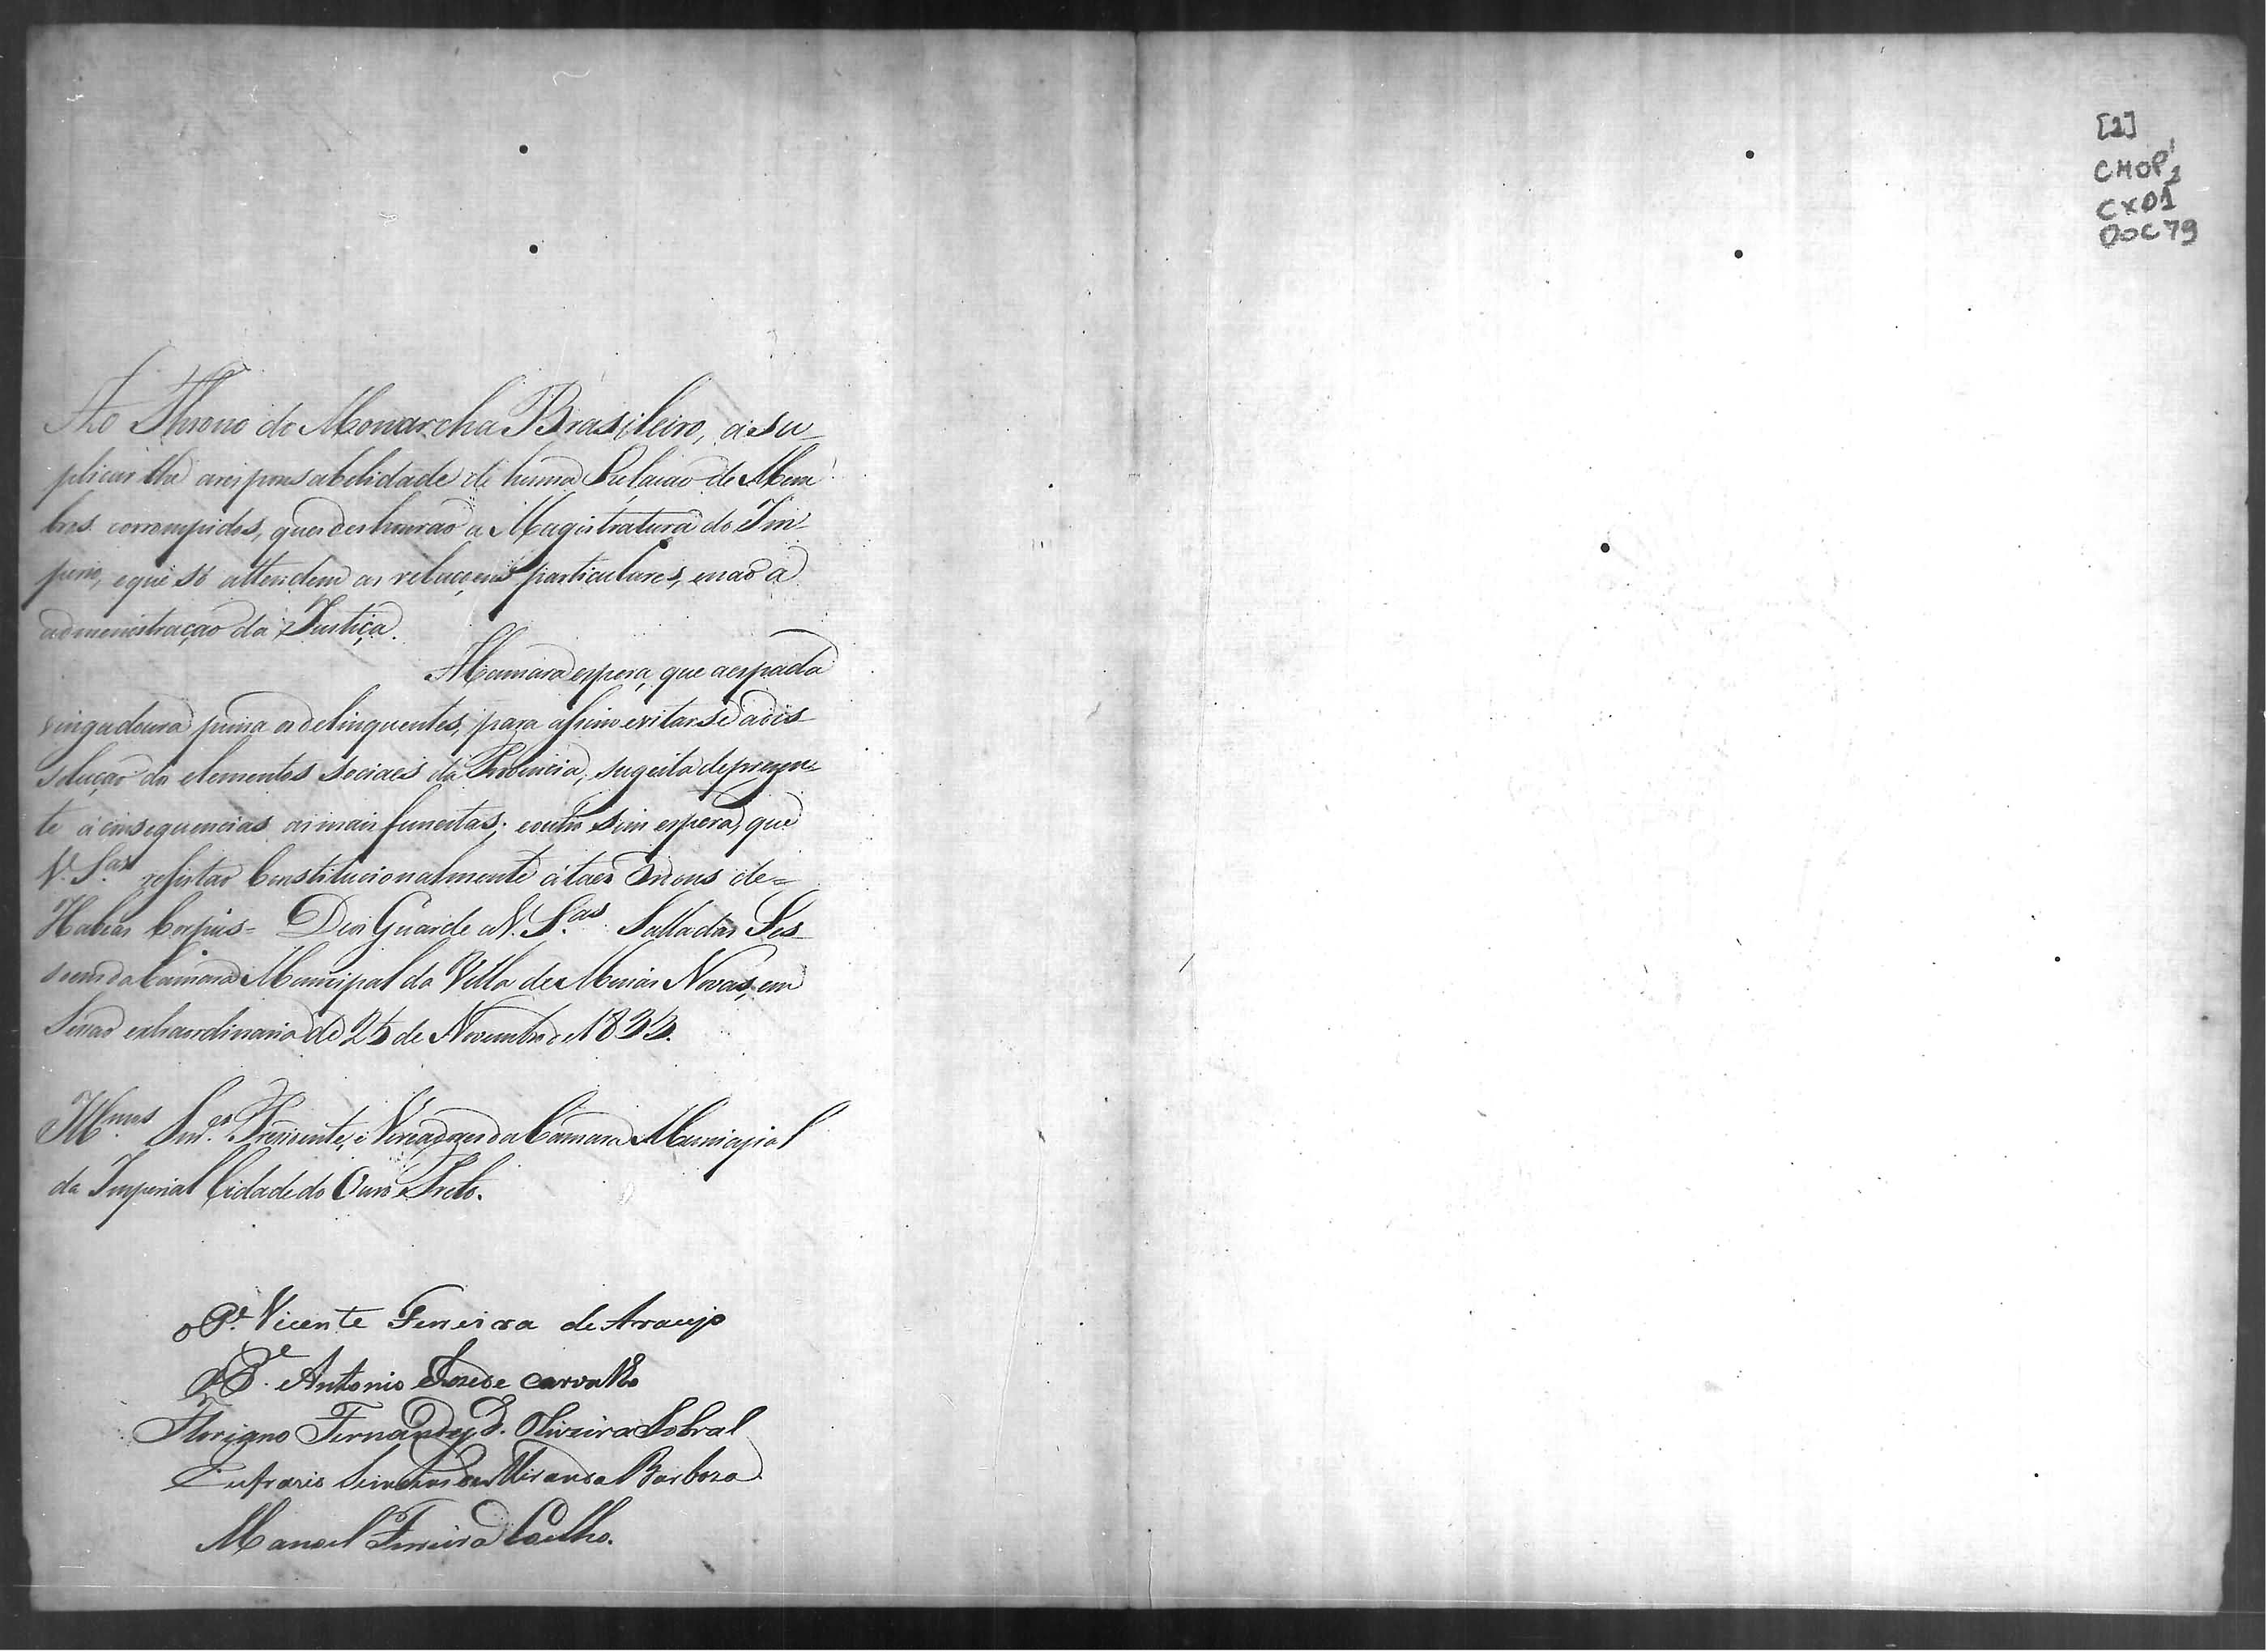 Ao Throno do Monarcha Brasileiro, a su-
plicar lhe aresponsabelidade de huma Rulaçaõ de Mem
bros corrompidos, que deshonraõ a Magistratura do Im-
perio, eque só attendem as relaçoens particulares, enaõ a
administraçaõ da Justiça.
A Camara espera, que aespada
vingadoura puna os delinquentes, para assim evitarse adis-
soluçaõ dos elementos sociaes da Provincia, sugeita deprezen-
te áconsequencias as mais funestas; eoutro sim espera, que
V. S.as resistaõ Constitucionalmente átaes Ordens de=
Habeas Corpus= Deos Guarde a V. S.as Salla das Ses-
soens da Camara Municipal da Villa de Minas Novas, em
Sessaõ extraordinaria de 25 de Novembro de 1833.
Ill.mos Snr.es Prezidente, e Vereadores da Camara Municipal
da Imperial Cidade do Ouro Preto.
o P.e Vicente Ferreira de Araujo
O P.e Antonio Joze de Carvalho
Floriano Fernandes d. Oliveira Sobral
Eufrazio de Miranda Barboza
Manoel Ferreira Coelho.
[2]
CMOP
CX01
DOC 79